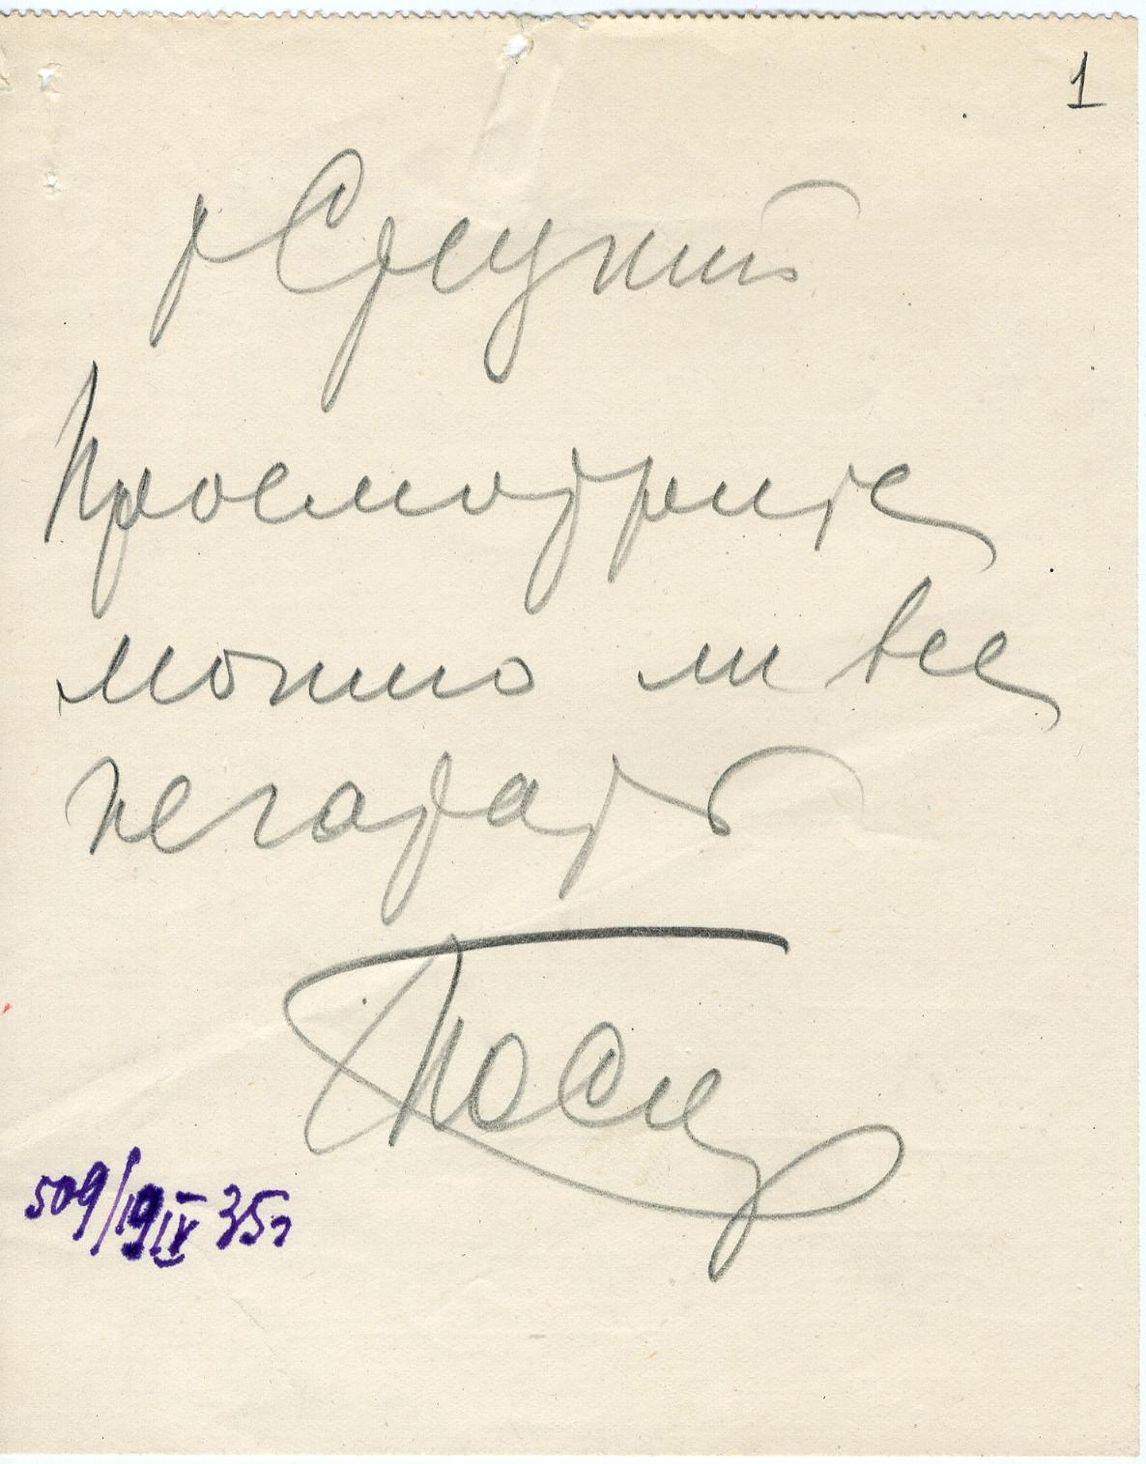 1
т Срецкий
Просмотрите
можно ли все
печатать
509/19 IV 35г